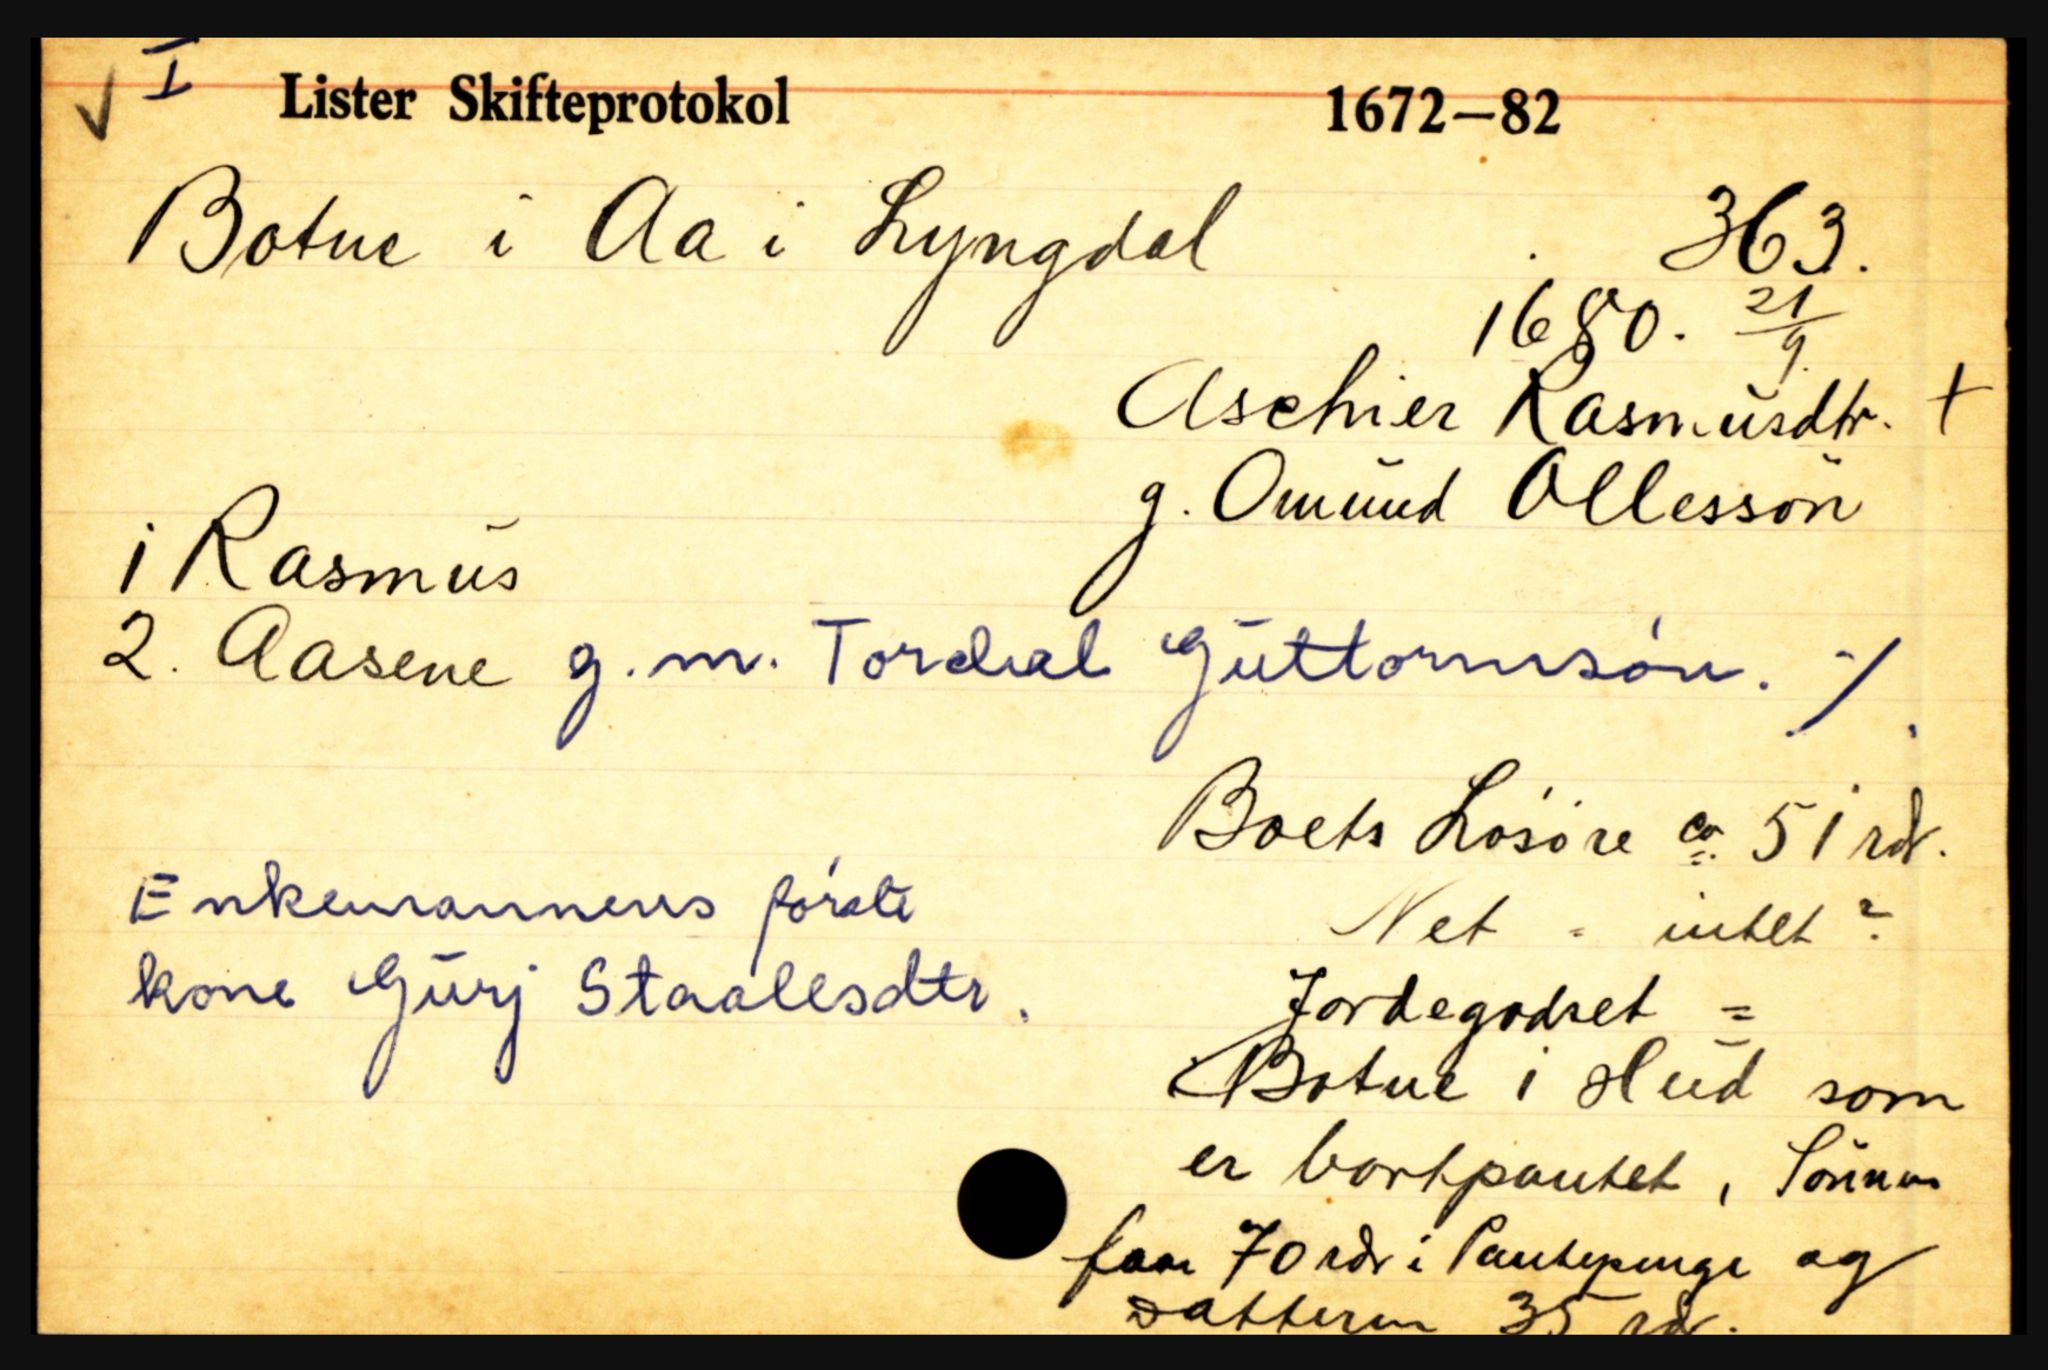 ✓ I Lister Skifteprotokol 1672–82
Botne i Aa i Lyngdal 363.
1680. 21/9.
Aschier Rasmusdtr. +
g. Omund Ollessön
1 Rasmus
2. Aasene g. m. Tordial Guttormsön. ·/.
Boets Lösöre ca. 51 rdr.
Net = intet?
Jordegodset =
Botne i Hud som
er bortpantet, Sönnen
faar 70 rdr i Pantepenge og
Datteren 35 rdr.
Enkemannens förste
kone Gurj Staalesdtr.